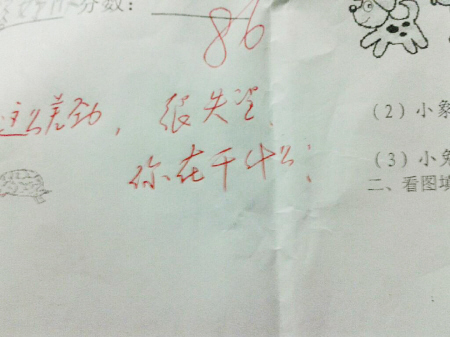 分数：
86
这么差劲，很失望，
你在干什么；
（2）小象
（3）小兔
二、看图填